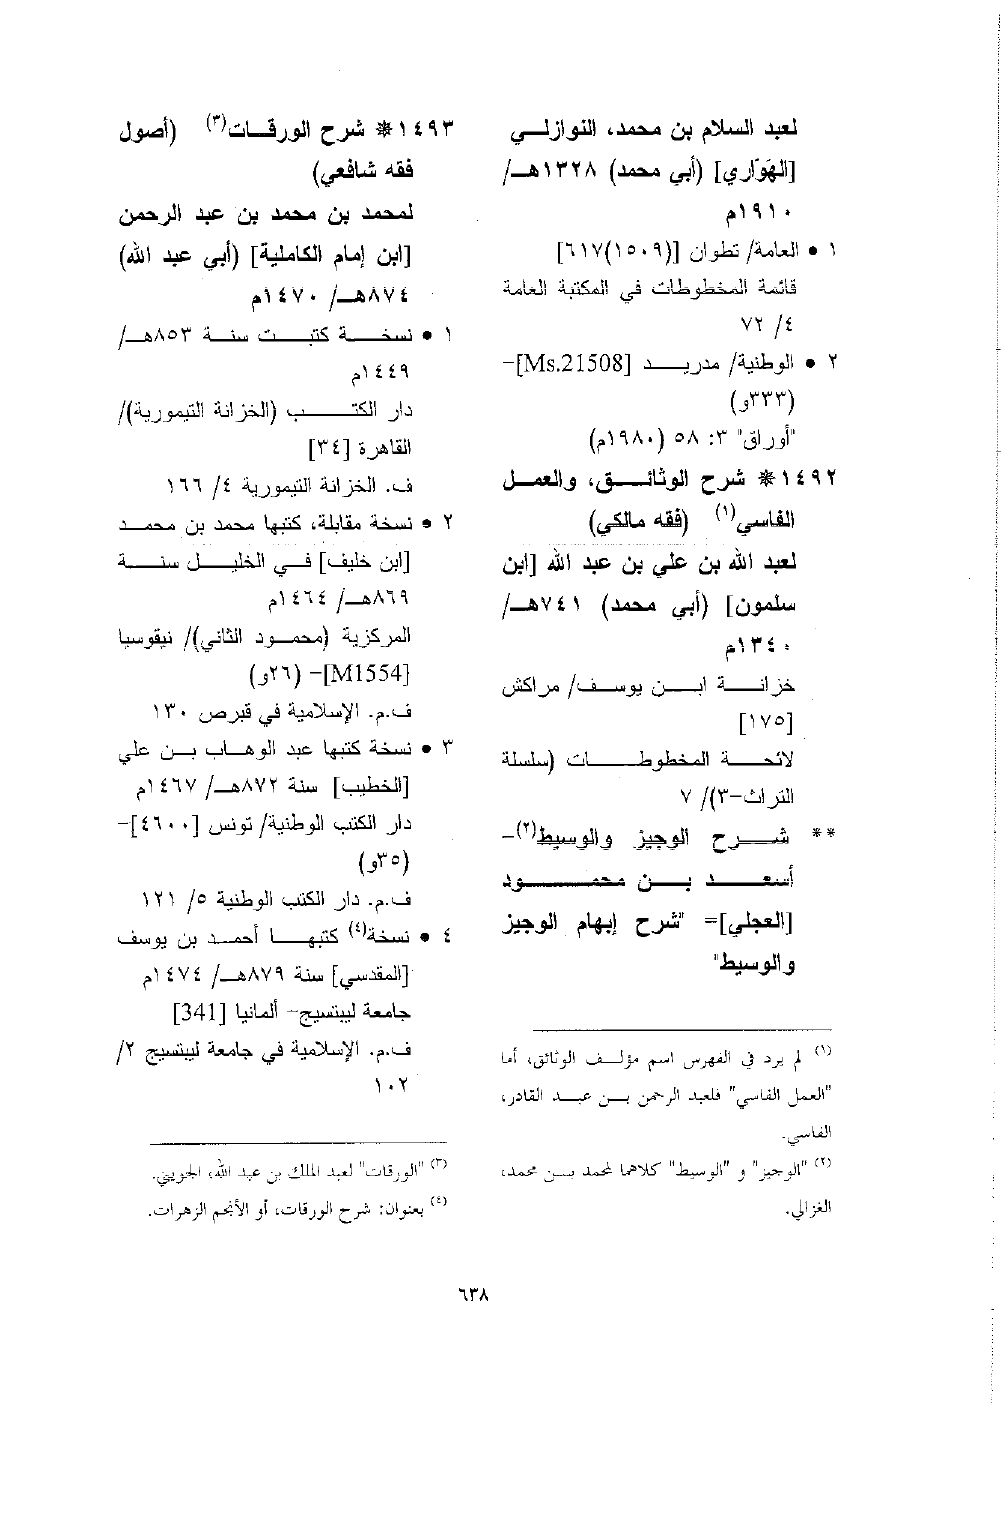 لعبد السلام بن محمد، النوازلي
[الهوّاري] (أبي محمد) ١٣٢٨هـ/
١٩١٠م
١ • العامة/ تطوان [(١٥٠٩)٦١٧]
قائمة المخطوطات في المكتبة العامة
٤/ ٧٢
٢ • الوطنية/ مدريد [Ms.21508]-
(٣٣٣و)
"أوراق" ٣: ٥٨ (١٩٨٠م)
١٤٩٢* شرح الوثائق، والعمل
الفاسي(١) (فقه مالكي)
لعبد الله بن علي بن عبد الله [ابن
سلمون] (أبي محمد) ٧٤١هـ/
١٣٤٠م
خزانة ابن يوسف/ مراكش
[١٧٥]
لائحة المخطوطات (سلسلة
التراث-٣)/ ٧
** شرح الوجيز والوسيط(٢)-
أسعد بن محمود
[العجلي]= "شرح إبهام الوجيز
والوسيط"
(١) لم يرد في الفهرس اسم مؤلف الوثائق، أما
"العمل الفاسي" فلعبد الرحمن بن عبد القادر،
الفاسي.
(٢) "الوجيز" و "الوسيط" كلاهما لمحمد بن محمد،
الغزالي.
١٤٩٣* شرح الورقات(٣) (أصول
فقه شافعي)
لمحمد بن محمد بن عبد الرحمن
[ابن إمام الكاملية] (أبي عبد الله)
٨٧٤هـ/ ١٤٧٠م
١ • نسخة كتبت سنة ٨٥٣هـ/
١٤٤٩م
دار الكتب (الخزانة التيمورية)/
القاهرة [٣٤]
ف. الخزانة التيمورية ٤/ ١٦٦
٢ • نسخة مقابلة، كتبها محمد بن محمد
[ابن خليف] في الخليل سنة
٨٦٩هـ/ ١٤٦٤م
المركزية (محمود الثاني)/ نيقوسيا
[M1554]- (٢٦و)
ف.م. الإسلامية في قبرص ١٣٠
٣ • نسخة كتبها عبد الوهاب بن علي
[الخطيب] سنة ٨٧٢هـ/ ١٤٦٧م
دار الكتب الوطنية/ تونس [٤٦٠٠]-
(٣٥و)
ف.م. دار الكتب الوطنية ٥/ ١٢١
٤ • نسخة(٤) كتبها أحمد بن يوسف
[المقدسي] سنة ٨٧٩هـ/ ١٤٧٤م
جامعة ليبتسيج- ألمانيا [341]
ف.م. الإسلامية في جامعة ليبتسيج ٢/
١٠٢
(٣) "الورقات" لعبد الملك بن عبد الله، الجويني.
(٤) بعنوان: شرح الورقات، أو الأنجم الزهرات.
٦٣٨